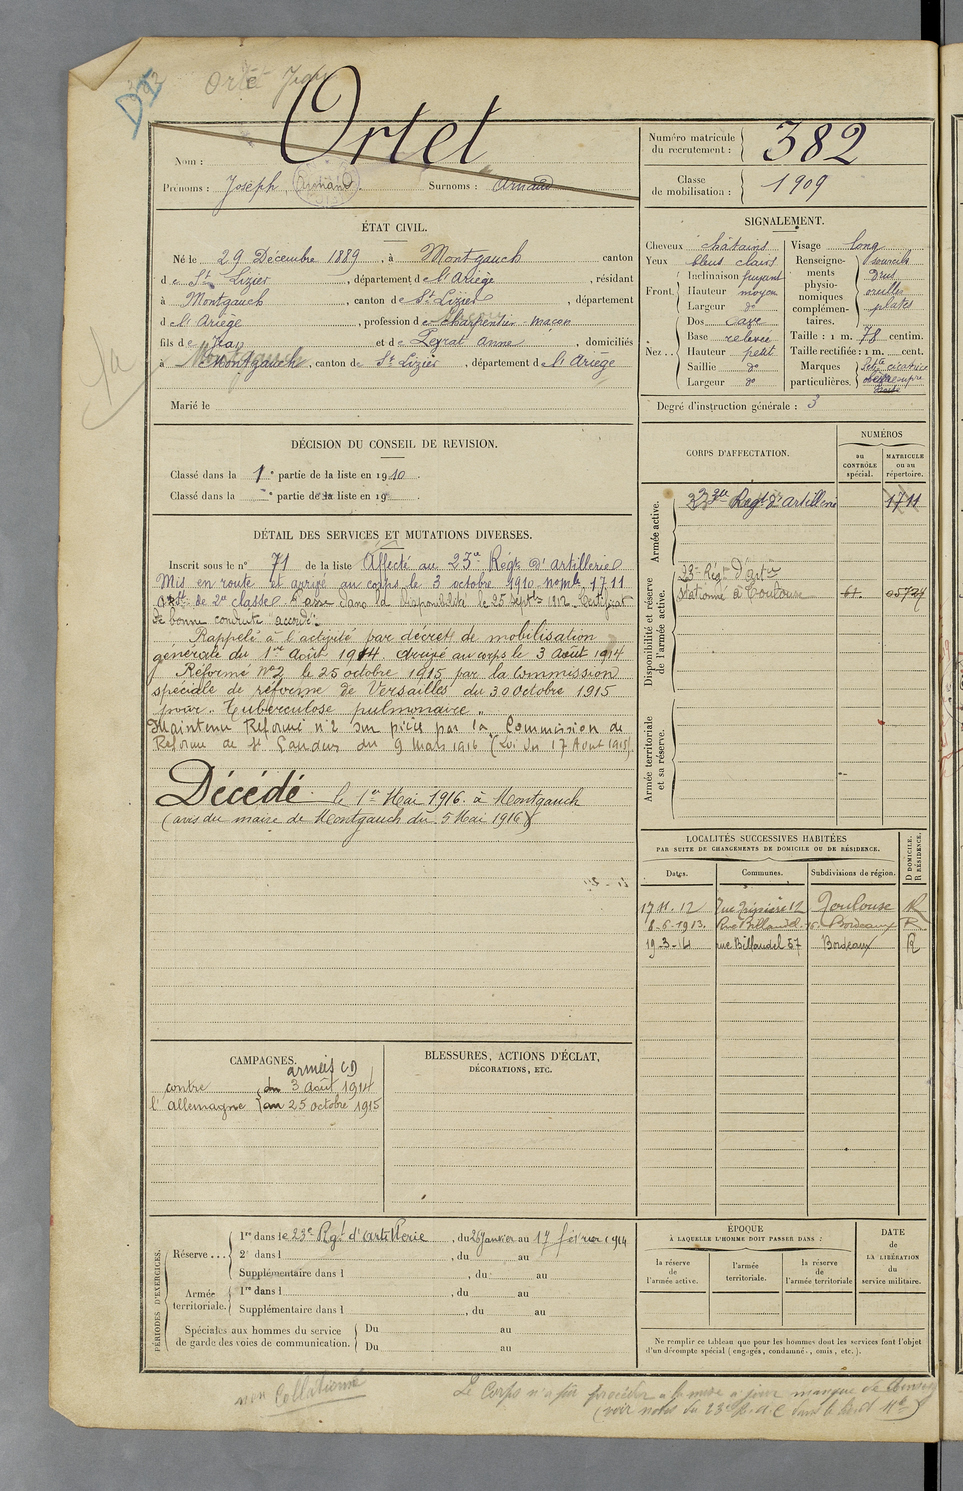 Ortet
Nom :
Prénoms : Joseph (Armand). Surnoms : Arnaud
Numéro matricule du recrutement : 382
Classe de mobilisation : 1909
ÉTAT CIVIL.
Né le 29 Décembre 1889, à Montgauch canton
de St Lizier, département de l'Ariège, résidant
à Montgauch, canton de St Lizier, département
de l'Ariège, profession de charpentier-maçon
fils de Jean et de Peyrat Anne, domiciliés
à Montgauch, canton de St Lizier, département de l'Ariège
Marié le
SIGNALEMENT.
Cheveux châtains
Yeux bleus clairs
Front Inclinaison fuyant
Hauteur moyen
Largeur do
Nez Dos cave
Base relevée
Hauteur petit
Saillie do
Largeur do
Visage long
Renseignements physionomiques complémentaires. sourcils drus oreilles plates
Taille : 1 m. 78 centim.
Taille rectifiée : 1 m. cent.
Marques particulières. cicatrice
Degré d'instruction générale : 3
DÉCISION DU CONSEIL DE REVISION.
Classé dans la 1re partie de la liste en 1910.
Classé dans la e partie de la liste en 19
DÉTAIL DES SERVICES ET MUTATIONS DIVERSES.
Inscrit sous le n° 71 de la liste Affecté au 23e Régt d'Artillerie
Mis en route et arrivé au corps le 3 octobre 1910. no mle 1711
de 2e classe. Passé dans la Disponibilité le 25 septbre 1912. Certificat
de bonne conduite accordé.
Rappelé à l'activité par décret de mobilisation
générale du 1er Août 1914. Arrivé au corps le 3 août 1914
Réformé No2 le 25 octobre 1915 par la Commission
spéciale de réforme de Versailles du 30 Octobre 1915
pour "Tuberculose pulmonaire"
Maintenu Réformé n°2 sur pièces par la Commission de
Réforme de St Gaudens du 9 Mars 1916 (Loi du 17 Aout 1915).
Décédé le 1er Mai 1916 à Montgauch
(avis du maire de Montgauch du 5 Mai 1916)
CORPS D'AFFECTATION.
NUMÉROS
au CONTRÔLE spécial.
MATRICULE ou au répertoire.
Armée active.
23e Regt d'Artillerie 1711
Disponibilité et réserve de l'armée active.
23e Régt d'artie
Stationné à Toulouse
Armée territoriale et sa réserve.
LOCALITÉS SUCCESSIVES HABITÉES
PAR SUITE DE CHANGEMENTS DE DOMICILE OU DE RÉSIDENCE.
D DOMICILE. R RÉSIDENCE.
Dates. Communes. Subdivisions de région.
17.11.12 rue 12 Toulouse R
8-6-1913. Rue Billaudel Bordeaux R
19-3-14 rue Billaudel 57 Bordeaux R
CAMPAGNES.
armées CD
contre du 3 Août 1914
l'Allemagne au 25 octobre 1915
BLESSURES, ACTIONS D'ÉCLAT,
DÉCORATIONS, ETC.
PÉRIODES D'EXERCICES.
Réserve... 1re dans le 23e Rgt d'Artillerie, du 26 Janvier au 17 février 1914
2e dans l , du au
Supplémentaire dans l , du au
Armée territoriale. 1re dans l , du au
Supplémentaire dans l , du au
Spéciales aux hommes du service de garde des voies de communication.
Du au
Du au
ÉPOQUE
À LAQUELLE L'HOMME DOIT PASSER DANS :
la réserve de l'armée active.
l'armée territoriale.
la réserve de l'armée territoriale
DATE de LA LIBÉRATION du service militaire.
Ne remplir ce tableau que pour les hommes dont les services font l'objet
d'un décompte spécial (engagés, condamné., omis, etc.).
non Collationné
Le Corps n'a pu procéder a la mise à jour manque de
(voir notes du 23e